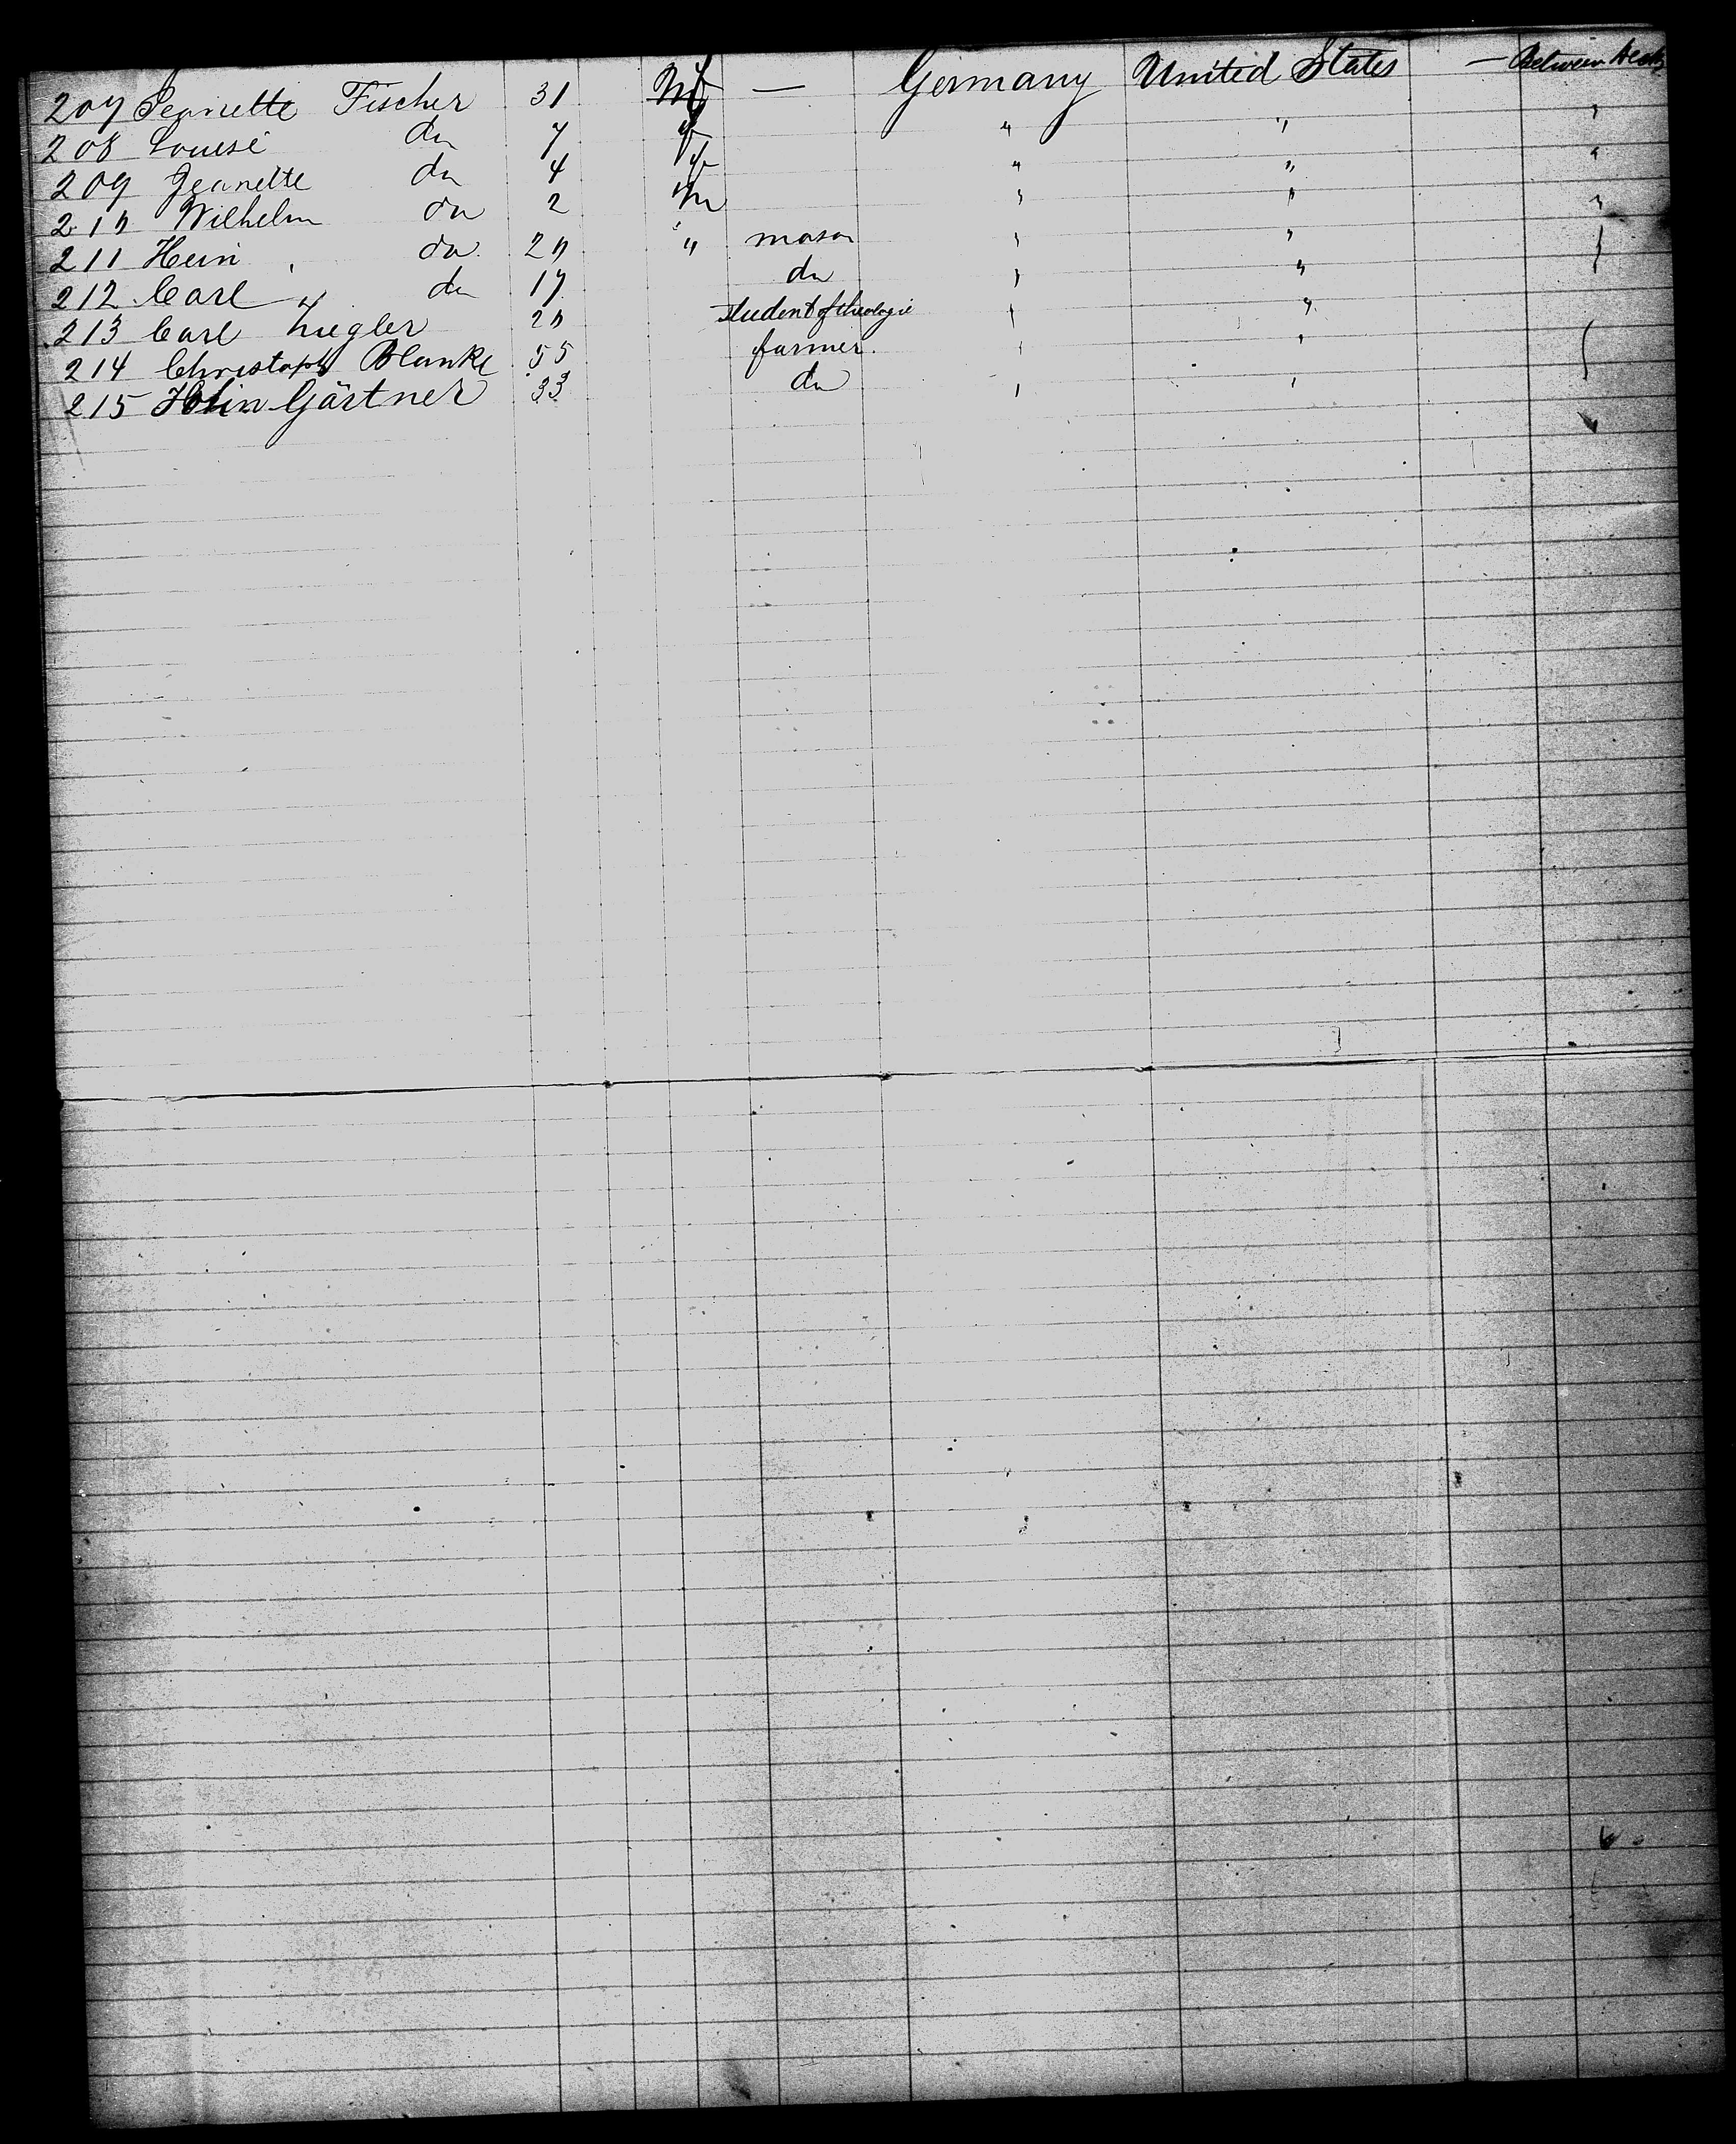 207 Jeanette Fischer 31 f — Germany United States — Between Decks
208 Louise do 7 f " " "
209 Jeanette do 4 f " " "
210 Wilhelm do 2 m " " "
211 Hein do. 20 " mason " " "
212 Carl do 17 do " "
213 Carl Ziegler 20 student of theologie " "
214 Christoph Blanke 55 farmer. " "
215 Hein Gärtner 33 do " "